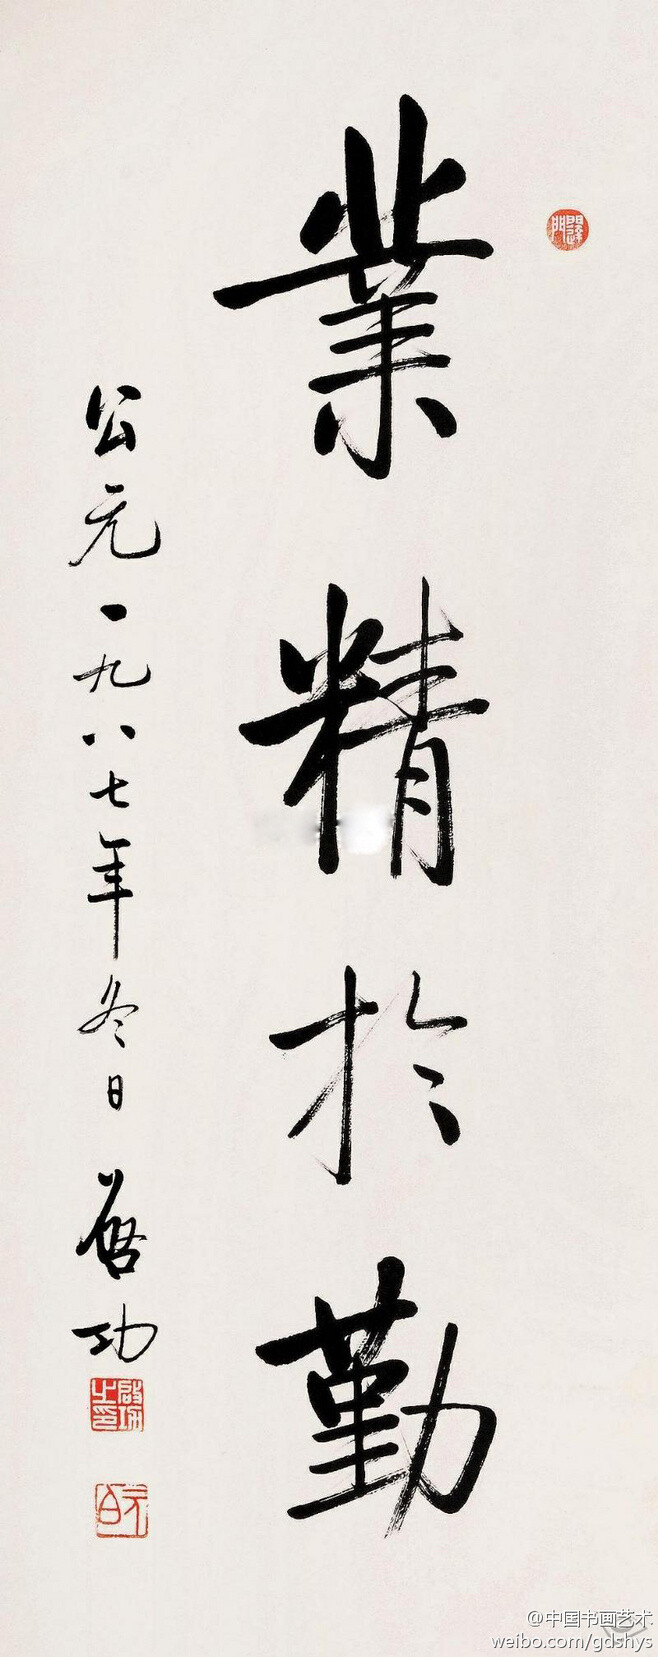 業精於勤
公元一九八七年冬日
啓功
啟功之印
元白
@中国书画艺术
weibo.com/gdshys